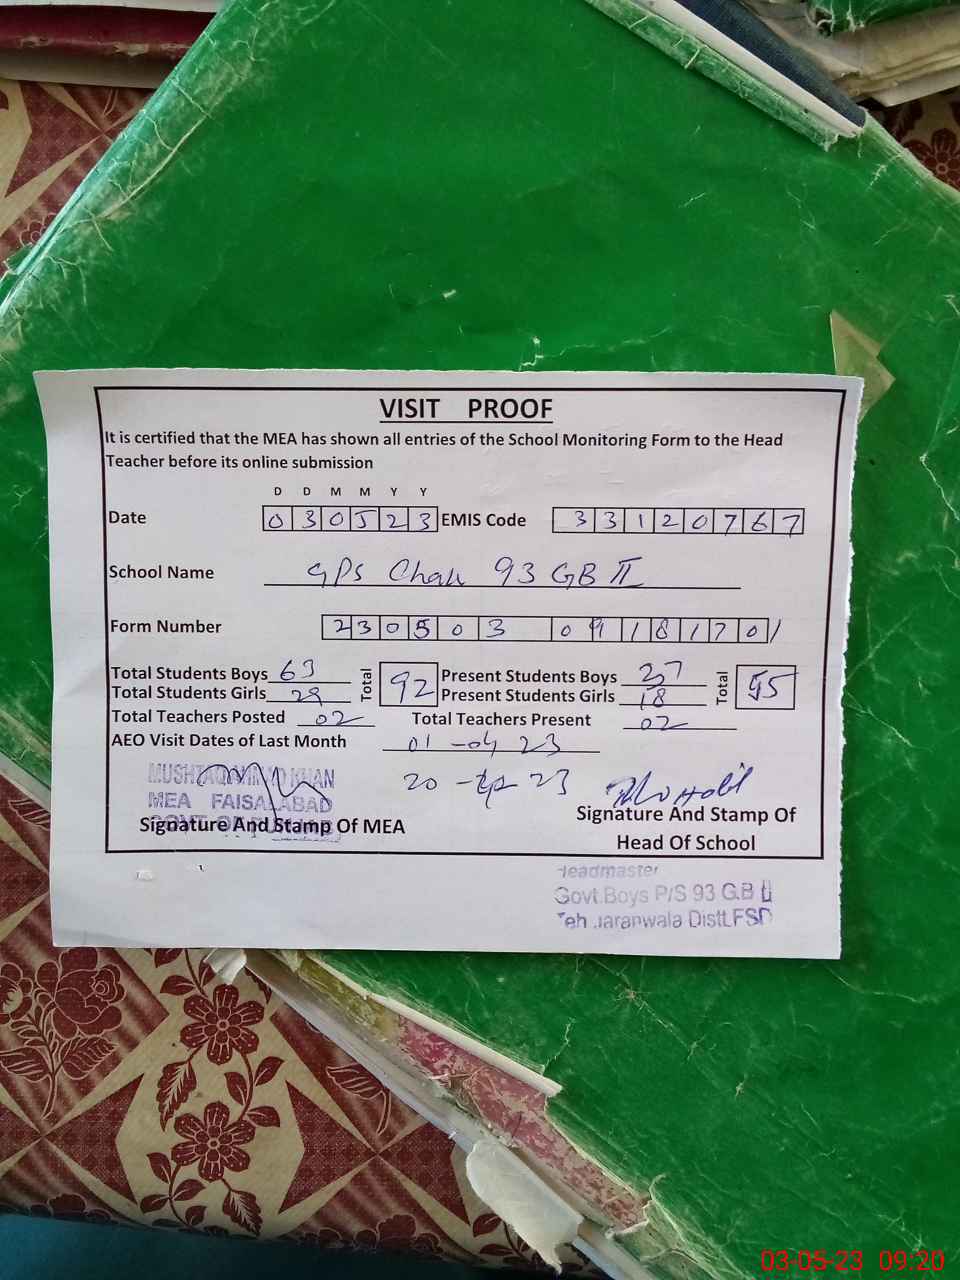 VISIT PROOF
It is certified that the MEA has shown all entries of the School Monitoring Form to the Head
Teacher before its online submission
D D M M Y Y
Date 0 3 0 5 2 3 EMIS Code 3 3 1 2 0 7 6 7
School Name GPS Chak 93 GB II
Form Number 2 3 0 5 0 3 0 9 1 8 1 7 0 1
Total Students Boys 63 Total 92 Present Students Boys 37 Total 55
Total Students Girls 29 Present Students Girls 18
Total Teachers Posted 02 Total Teachers Present 02
AEO Visit Dates of Last Month 01-04 23
20 - 23
MUSHTAQ AHMAD KHAN
MEA FAISALABAD
GOVT OF PUNJAB
Signature And Stamp Of MEA
Signature And Stamp Of
Head Of School
Headmaster
Govt.Boys P/S 93 G.B II
Teh Jaranwala Distt.FSD
03-05-23 09:20